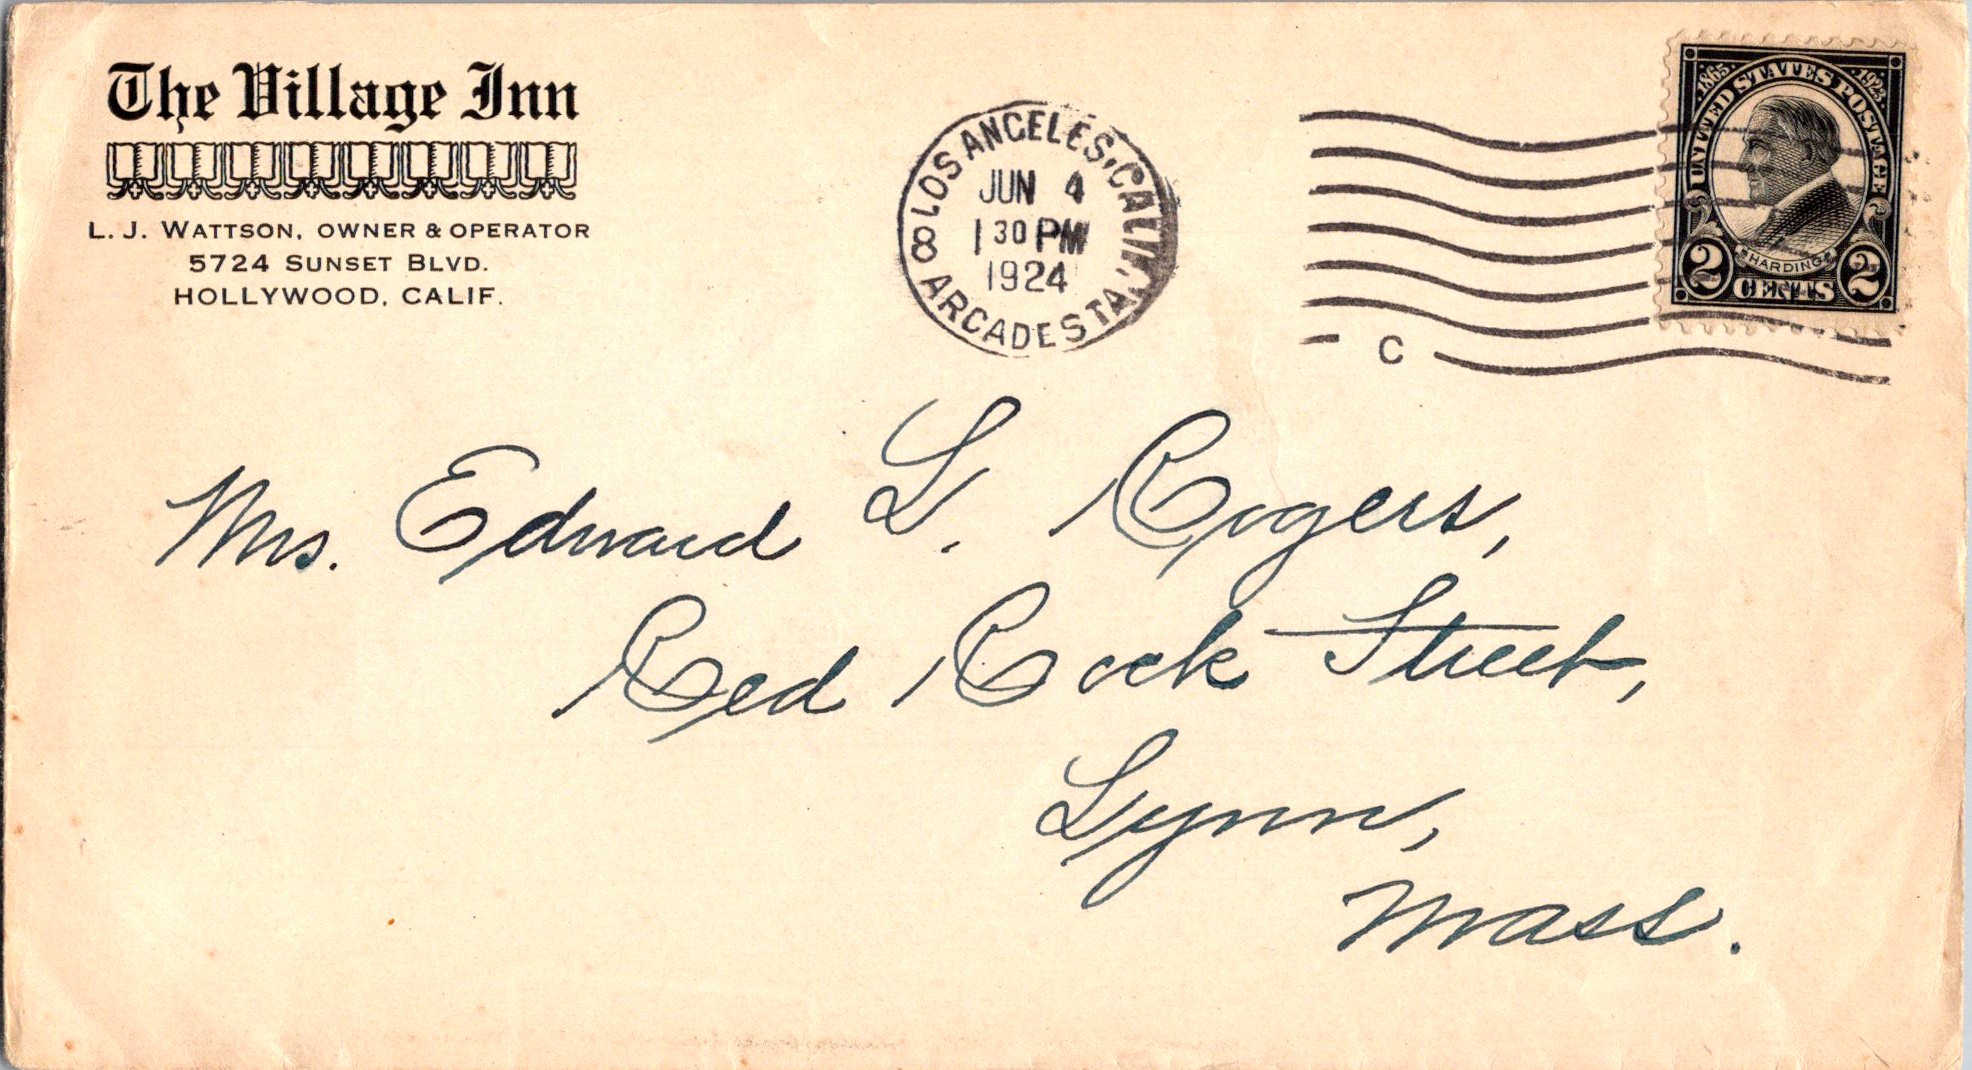 The Village Inn
L. J. WATTSON, OWNER & OPERATOR
5724 SUNSET BLVD.
HOLLYWOOD, CALIF.
LOS ANGELES, CALIF.
JUN 4
1 30 PM
1924
8 ARCADE STA.
C
1865 UNITED STATES POSTAGE 1923
HARDING
2 CENTS 2
Mrs. Edward L. Rogers,
Red Rock Street,
Lynn,
Mass.